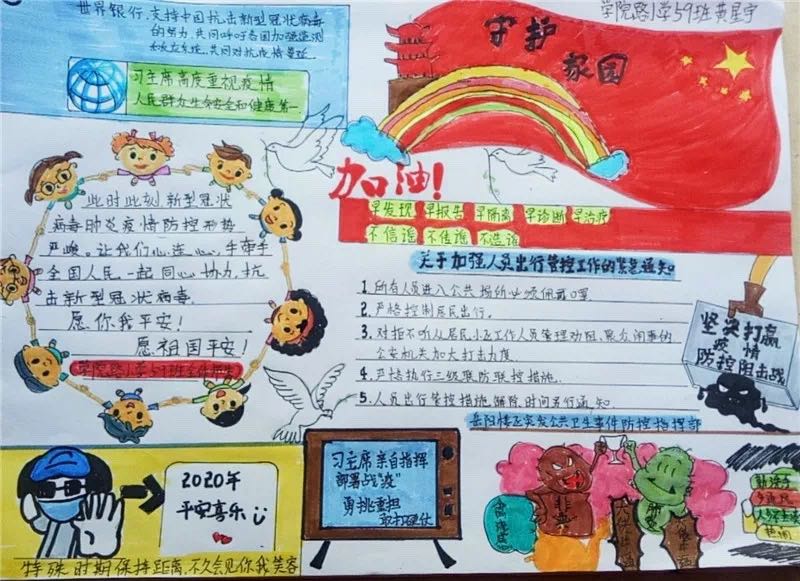 学院路小学59班黄星宇
世界银行,支持中国抗击新型冠状病毒
的努力,共同呼吁各国加强监测
和反应系统,共同对抗疫情蔓延
习主席高度重视疫情
人民群众生命安全和健康第一
守护
家园
加油!
早发现 早报告 早隔离 早诊断 早治疗
不信谣 不传谣 不造谣
此时此刻,新型冠状
病毒肺炎疫情防控形势
严峻。让我们心连心、手牵手
全国人民一起同心协力,抗
击新型冠状病毒
愿你我平安!
愿祖国平安!
学院路小学59班
关于加强人员出行管控工作的紧急通知
1.所有人员进入公共场所必须佩戴口罩
2.严格控制居民出行。
3.对拒不听从居民小区工作人员管理劝阻、聚众闹事的
公安机关加大打击力度
4.严格执行三级联防联控措施。
5.人员出行管控措施解除时间另行通知
突发公共卫生事件防控指挥部
坚决打赢
疫情
防控阻击战
2020年
平安喜乐
特殊时期保持距离,不久会见你我笑容
习主席亲自指挥
部署战“疫”
勇挑重担
敢打硬仗
非典